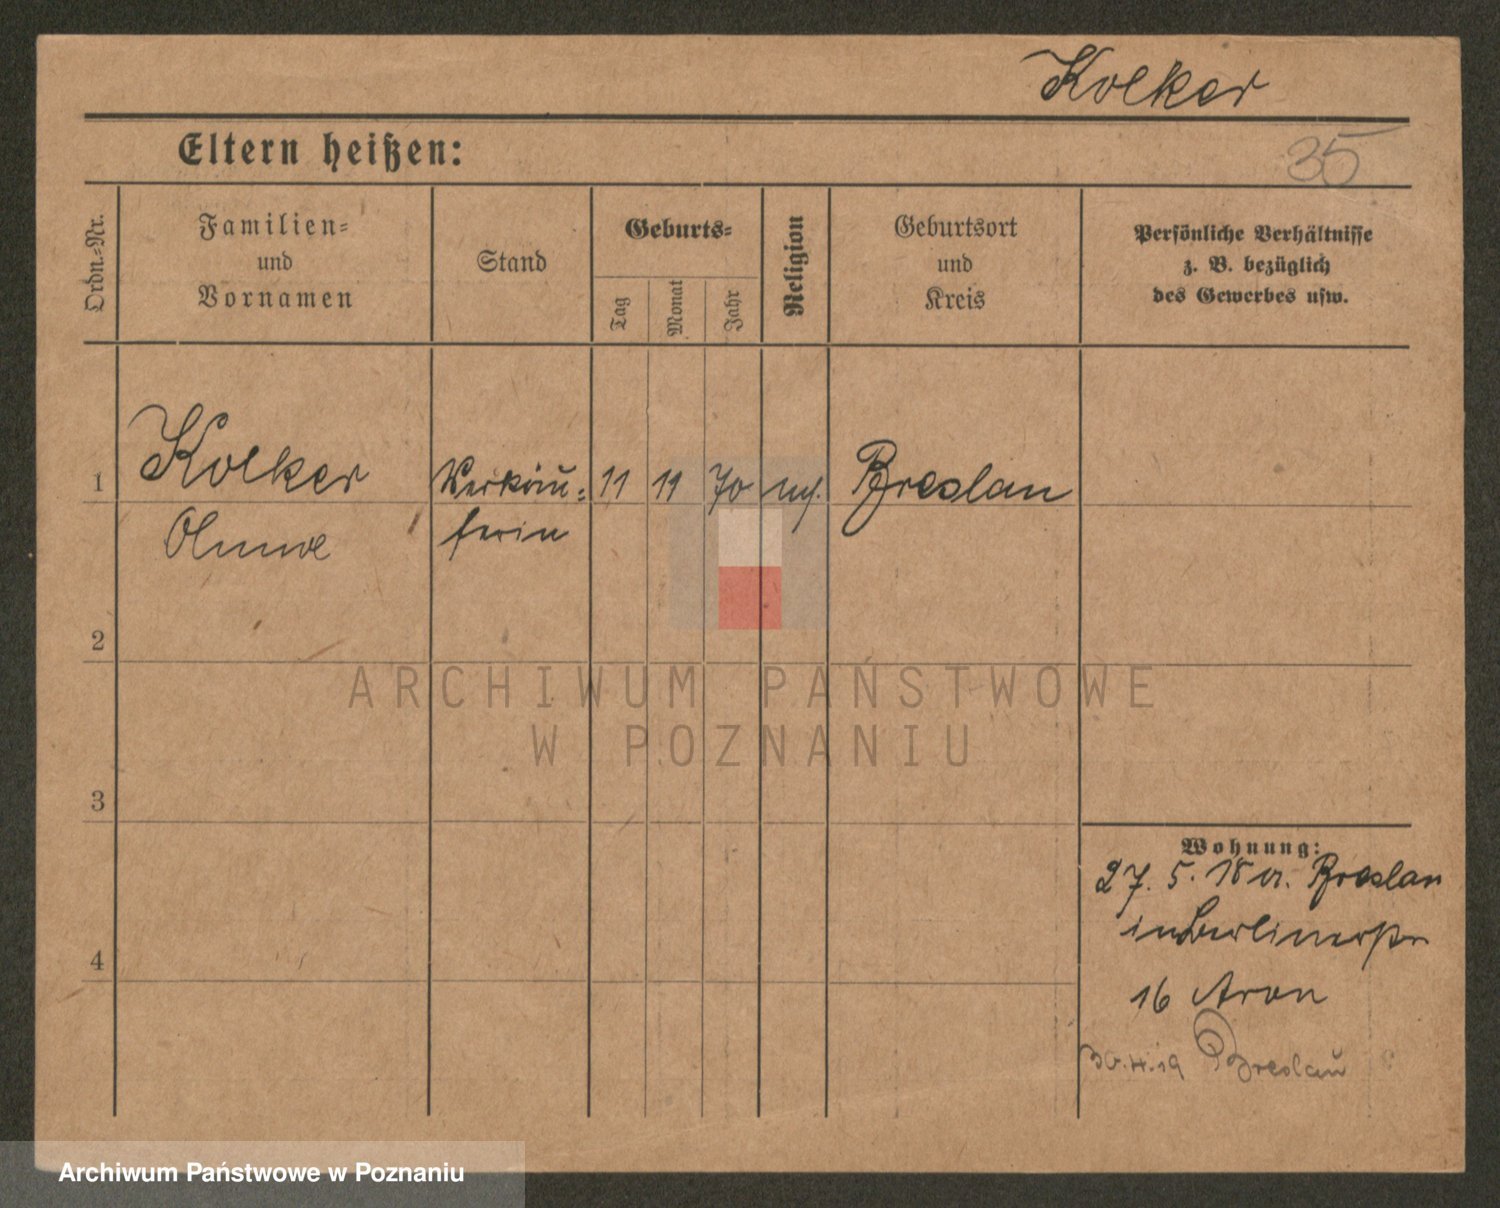 Kolker
Eltern heißen:
35
Ordn.-Nr.
Familien-
und
Vornamen
Stand
Geburts-
Tag
Monat
Jahr
Religion
Geburtsort
und
Kreis
Persönliche Verhältnisse
z. B. bezüglich
des Gewerbes usw.
1
Kolker
Verkäu-
11
11
70
Breslau
ferin
2
ARCHIWUM PAŃSTWOWE
W POZNANIU
3
Wohnung:
27. 5. 18 a. Breslau
in Berlinerstr
4
16 Aron
30.4.19 Breslau
Archiwum Państwowe w Poznaniu